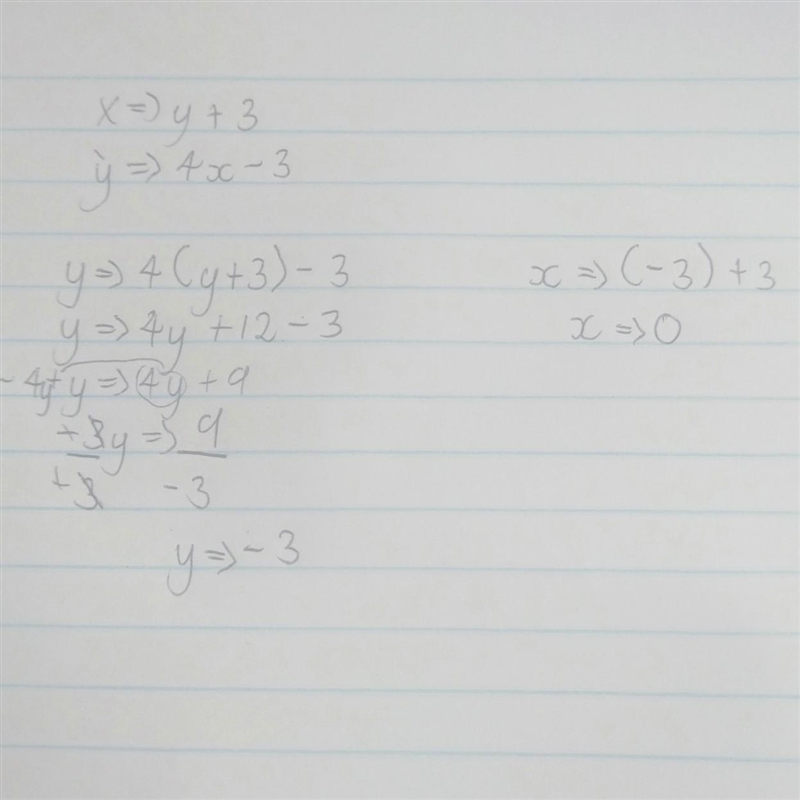 x => y + 3
y => 4x - 3
y => 4(y+3) - 3
y => 4y + 12 - 3
- 4y + y => 4y + 9
+3y => 9
+3 -3
y => -3
x => (-3) + 3
x => 0